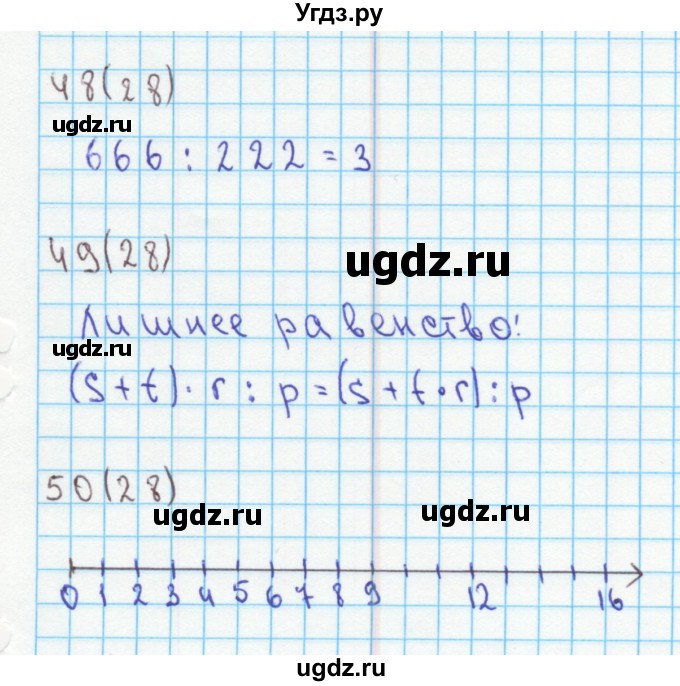 Угдз.ру
48(28)
ugdz.ru
666 : 222 = 3
49(28)
ugdz.ru
Лишнее равенство:
ugdz.ru
(s + t) · r : p = (s + t · r) : p
50(28)
ugdz.ru
ugdz.ru
0 1 2 3 4 5 6 7 8 9 12 16
ugdz.ru